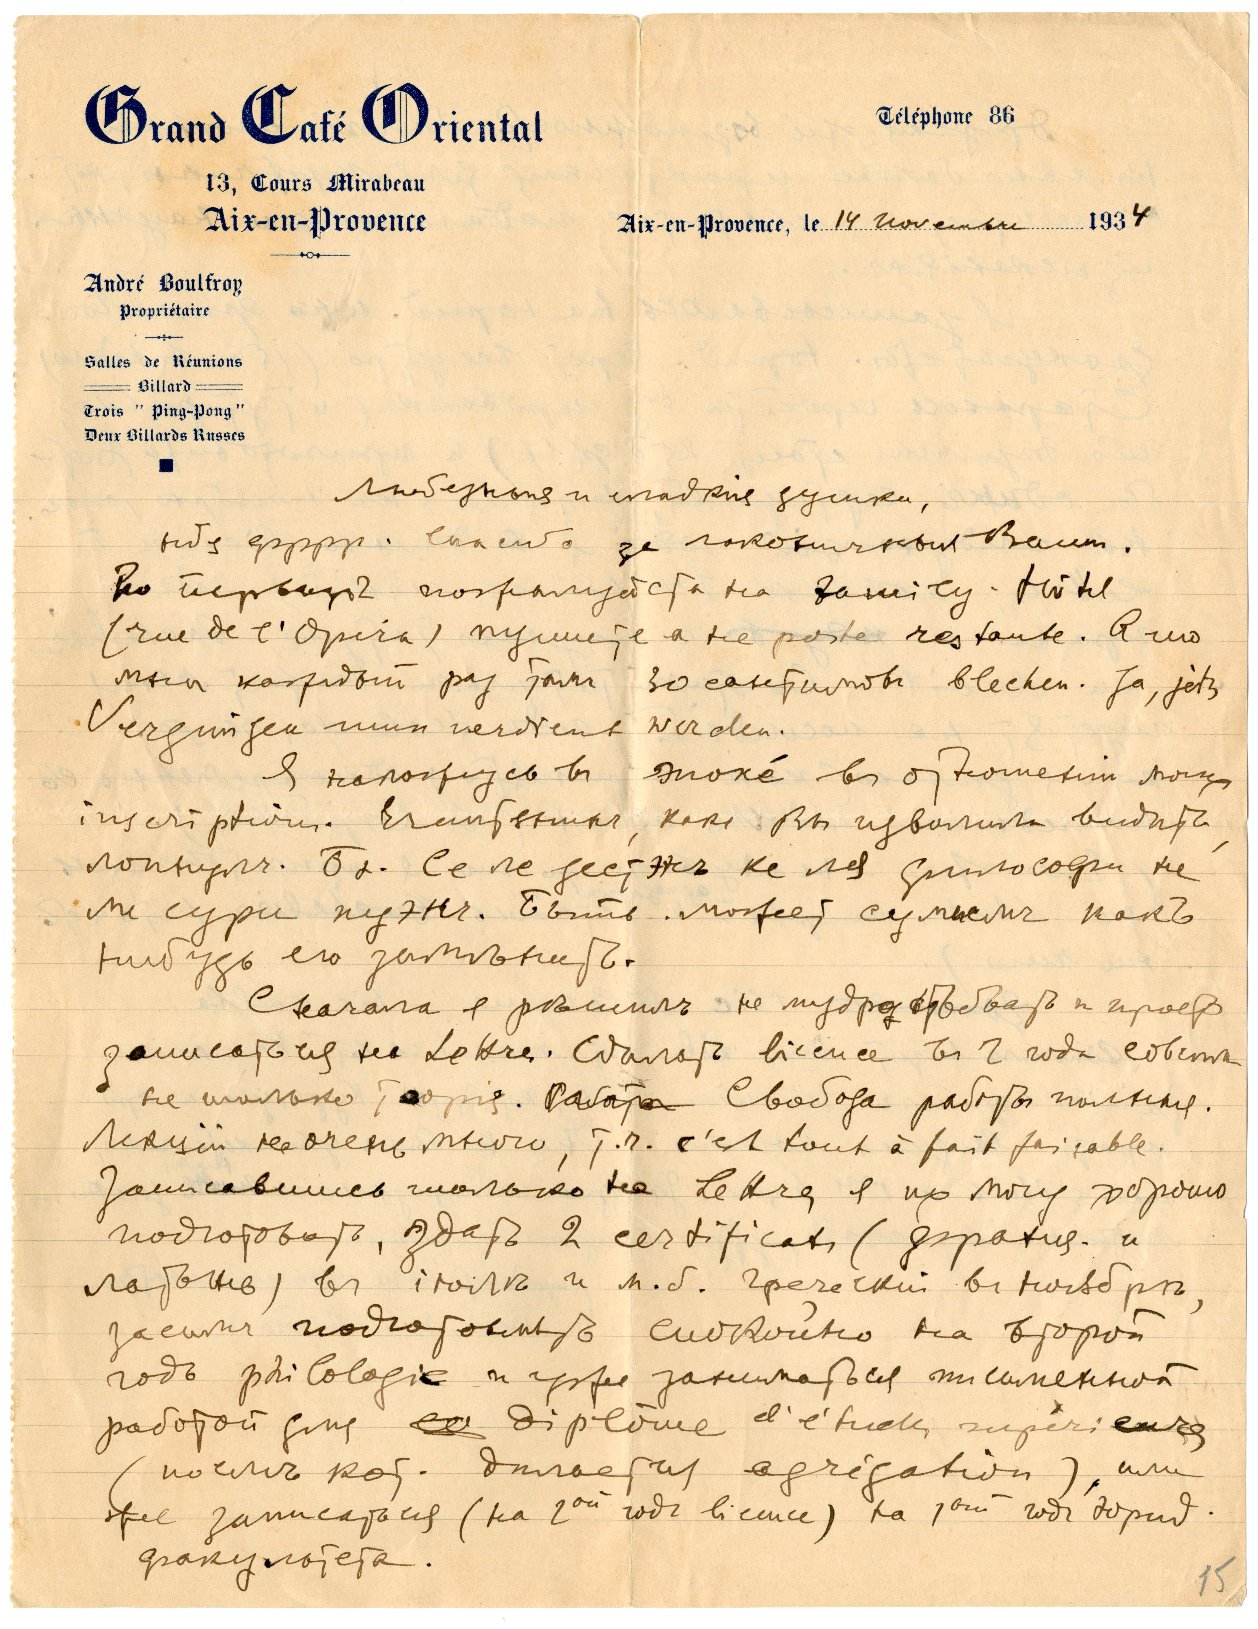 Grand Café Oriental
Téléphone 86
13, Cours Mirabeau
Aix-en-Provence
Aix-en-Provence, le 14 novembre 1934
André Boulfroy
Propriétaire
Salles de Réunions
Billard
Trois " Ping-Pong "
Deux Billards Russes
Любезныя и сладкія душки,
Спасибо за лаконичныя
Во первыхъ пожалуйста на Family-Hôtel
(rue de l'Opéra) пишите а не poste restante. А то
мнѣ каждый раз там 30 сантимовъ blechen. Ja, jedes
Vergnügen muss verdient werden.
Я нахожусь въ въ отношеніи моихъ
inscription. какъ Вы изволили видѣть,
лопнулъ. Бж. Се не ке ля философи не
ме сури Быть может сумѣемъ какъ
нибудь его замѣнить.
Сначала я рѣшилъ не мудрствовать и просто
записаться на Lettres. Сдѣлать licence въ 2 года совсѣмъ
не только теорія. Работа Свобода работы полная.
Лекцій не очень много, т.ч. c'est tout à fait faisable.
Записавшись только на Lettres я их могу хорошо
подготовить, здать 2 certificats (француз. и
латынь) въ іюлѣ и м.б. греческій въ ноябрѣ,
засимъ подготовить спокойно на второй
годъ philologie и уже заниматься письменной
работой для diplôme d'études supérieures
(послѣ кот. дѣлается agrégation), или
же записаться (на 2ой годъ licence) на 1ый годъ юрид.
факультета.
15